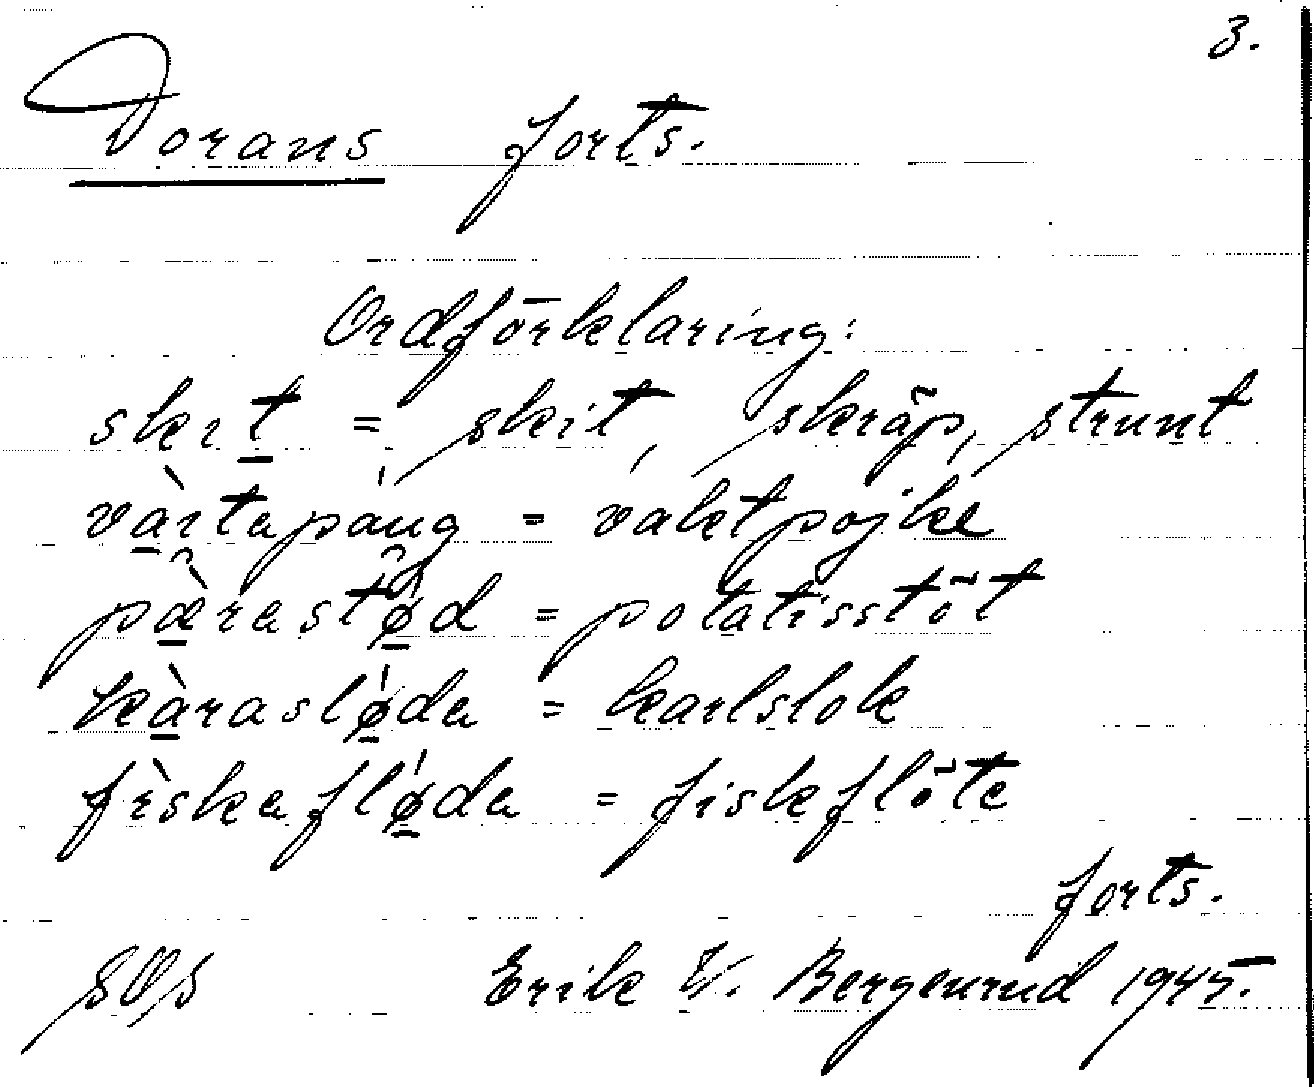 3.
Dorans forts.
Ordförklaring:
skit = skit, skräp, strunt
vàrtapàng = vaktpojke
pàrastø̀d = potatisstöt
kàrasløda = karlslok
fìskafløda = fiskflöte
forts.
SOS Erik V. Bergenrud 1945.